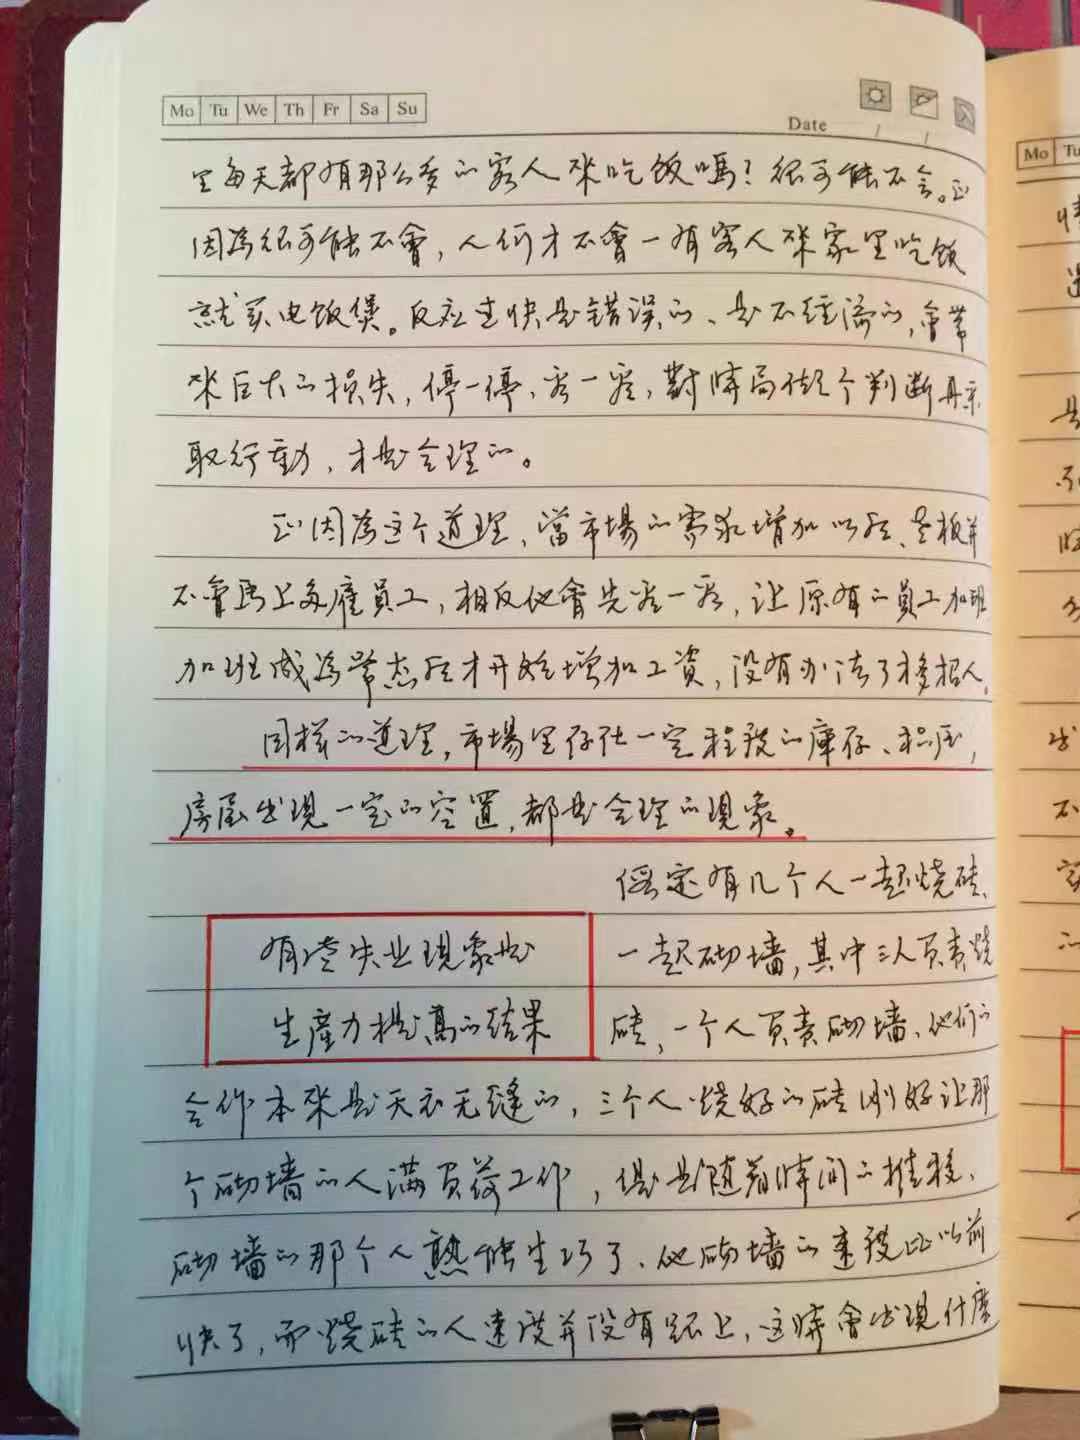 Mo Tu We Th Fr Sa Su
Date
里每天都有那么多的客人来吃饭嗎？很可能不会。正
因為很可能不會，人们才不會一有客人來家里吃饭
就买电饭煲。反应过快是错误的、是不经济的，會帶
來巨大的损失，停一停、看一看，對時局做个判断再采
取行動，才是合理的。
正因為这个道理，當市場的需求增加以后、老板并
不會馬上多雇員工，相反他會先看一看，让原有的員工加班
加班成為常态后才开始增加工資，没有办法了才招人。
同樣的道理，市場里存在一定程度的庫存、积压，
房屋出現一定的空置，都是合理的現象。
假定有几个人一起烧砖、
有些失业現象是
一起砌墙，其中三人負責烧
生產力提高的结果
砖，一个人負責砌墙、他们的
合作本來是天衣无缝的，三个人烧好的砖刚好让那
个砌墙的人满負荷工作，但是随着時间的推移、
砌墙的那个人熟能生巧了、他砌墙的速度比以前
快了，而烧砖的人速度并没有跟上，这時會出現什麼
Mo Tu